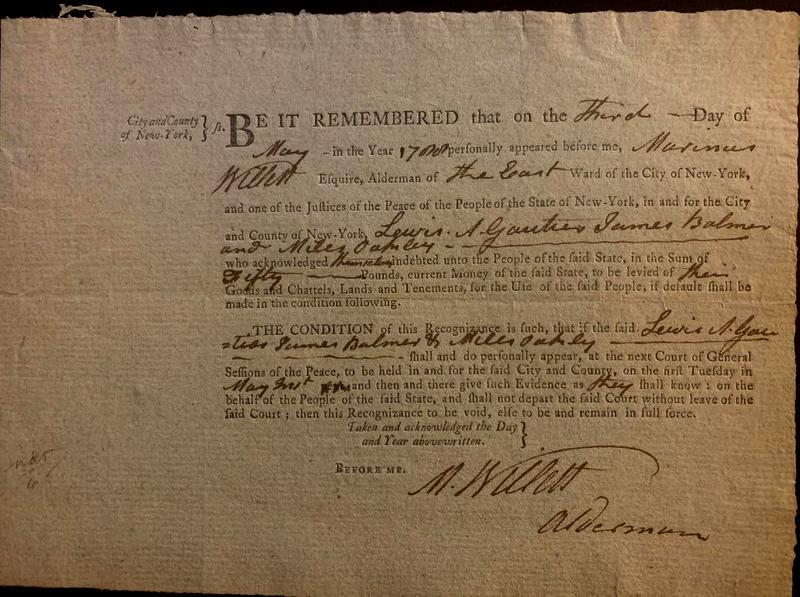 City and County
of New-York, } ſs.
BE IT REMEMBERED that on the third — Day of
May - in the Year personally appeared before me, Marinus
Willett Esquire, Alderman of the East Ward of the City of New-York,
and one of the Juſtices of the Peace of the People of the State of New-York, in and for the City
and County of New-York, Lewis. A. Gautier James Balmer
and Miles Oakley —
who acknowledged themselves indebted unto the People of the ſaid State, in the Sum of
Fifty — Pounds, current Money of the ſaid State, to be levied of their
Goods and Chattels, Lands and Tenements, for the Uſe of the ſaid People, if default ſhall be
made in the condition following.
THE CONDITION of this Recognizance is ſuch, that if the ſaid Lewis A. Gau
=tier James Balmer & Miles Oakley —
— ſhall and do perſonally appear, at the next Court of General
Seſſions of the Peace, to be held in and for the ſaid City and County, on the firſt Tueſday in
May Inst and then and there give ſuch Evidence as they ſhall know : on the
behalf of the People of the ſaid State, and ſhall not depart the ſaid Court without leave of the
ſaid Court ; then this Recognizance to be void, elſe to be and remain in full force.
Taken and acknowledged the Day
and Year abovewritten. }
BEFORE ME.
M. Willett
Alderman